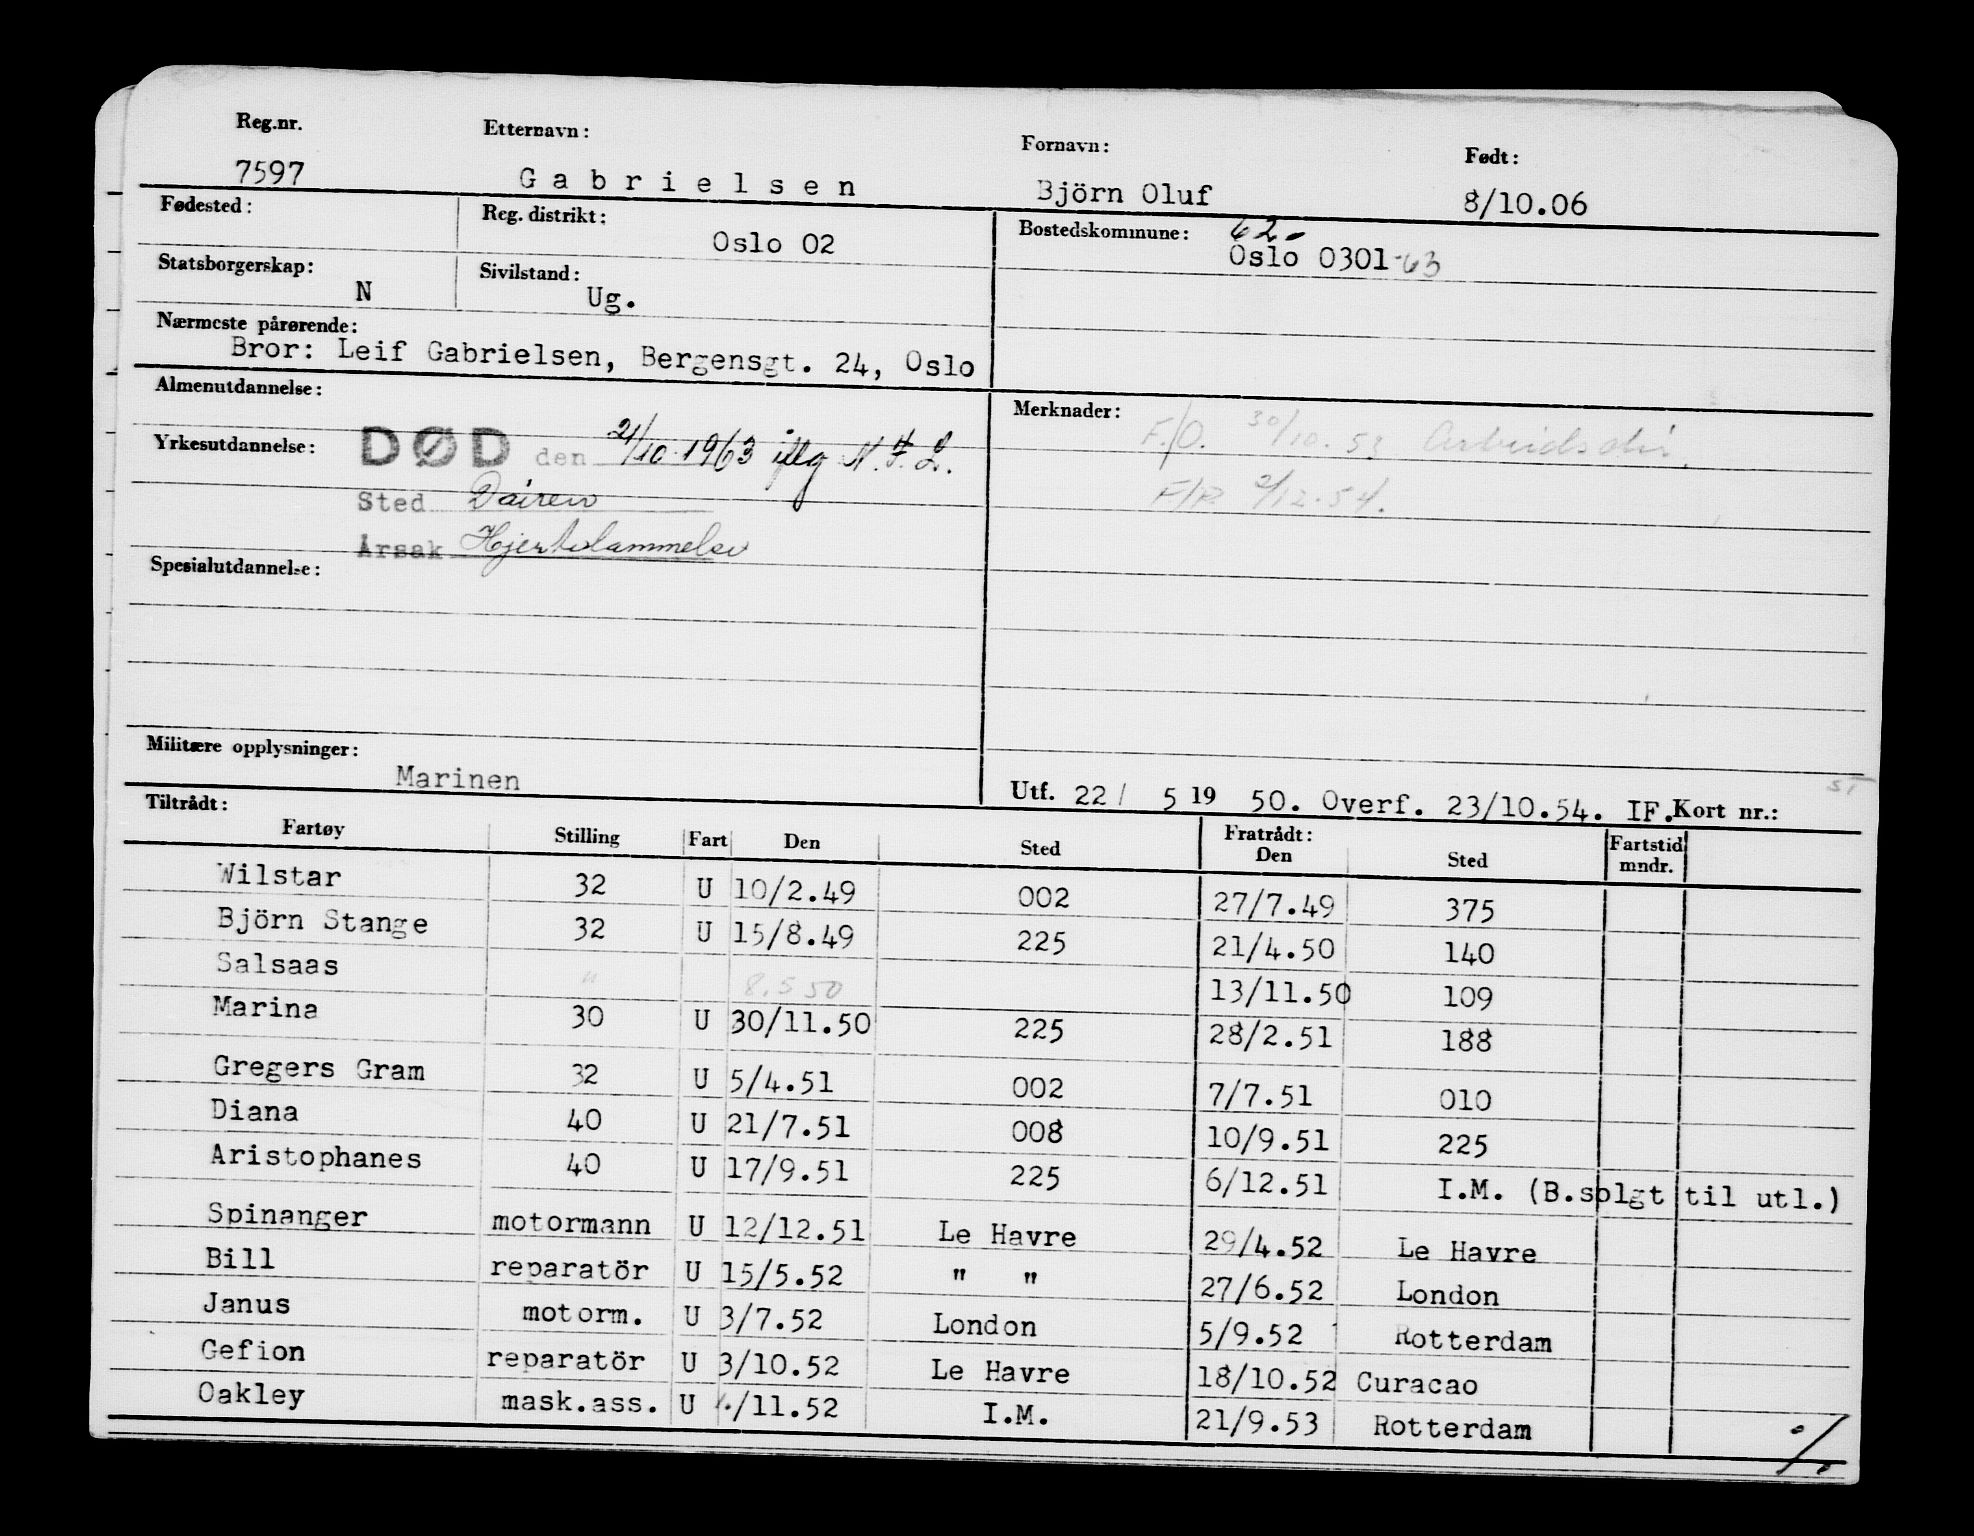 Reg.nr. Etternavn: Fornavn: Født:
7597 Gabrielsen Björn Oluf 8/10.06
Fødested: Reg. distrikt: Oslo 02 Bostedskommune: 62.
Oslo 0301-63
Statsborgerskap: N Sivilstand: Ug.
Nærmeste pårørende:
Bror: Leif Gabrielsen, Bergensgt. 24, Oslo
Almenutdannelse: Merknader: F.O. 30/10.53 Arbeidsdir.
Yrkesutdannelse: DØD den 21/10 1963 iflg N.F.L.
F/R 2/12.54.
Sted Dairen
Årsak Hjertelammelse
Spesialutdannelse:
Militære opplysninger:
Marinen
Utf. 22/ 5 19 50. Overf. 23/10.54. IF. Kort nr.: ST
Tiltrådt: Fratrådt:
Fartøy Stilling Fart Den Sted Den Sted Fartstid mndr.
Wilstar 32 U 10/2.49 002 27/7.49 375
Björn Stange 32 U 15/8.49 225 21/4.50 140
Salsaas " 8.5 50 13/11.50 109
Marina 30 U 30/11.50 225 28/2.51 188
Gregers Gram 32 U 5/4.51 002 7/7.51 010
Diana 40 U 21/7.51 008 10/9.51 225
Aristophanes 40 U 17/9.51 225 6/12.51 I.M. (B.solgt til utl.)
Spinanger motormann U 12/12.51 Le Havre 29/4.52 Le Havre
Bill reparatör U 15/5.52 " " 27/6.52 London
Janus motorm. U 3/7.52 London 5/9.52 Rotterdam
Gefion reparatör U 3/10.52 Le Havre 18/10.52 Curacao
Oakley mask.ass. U /11.52 I.M. 21/9.53 Rotterdam
./.